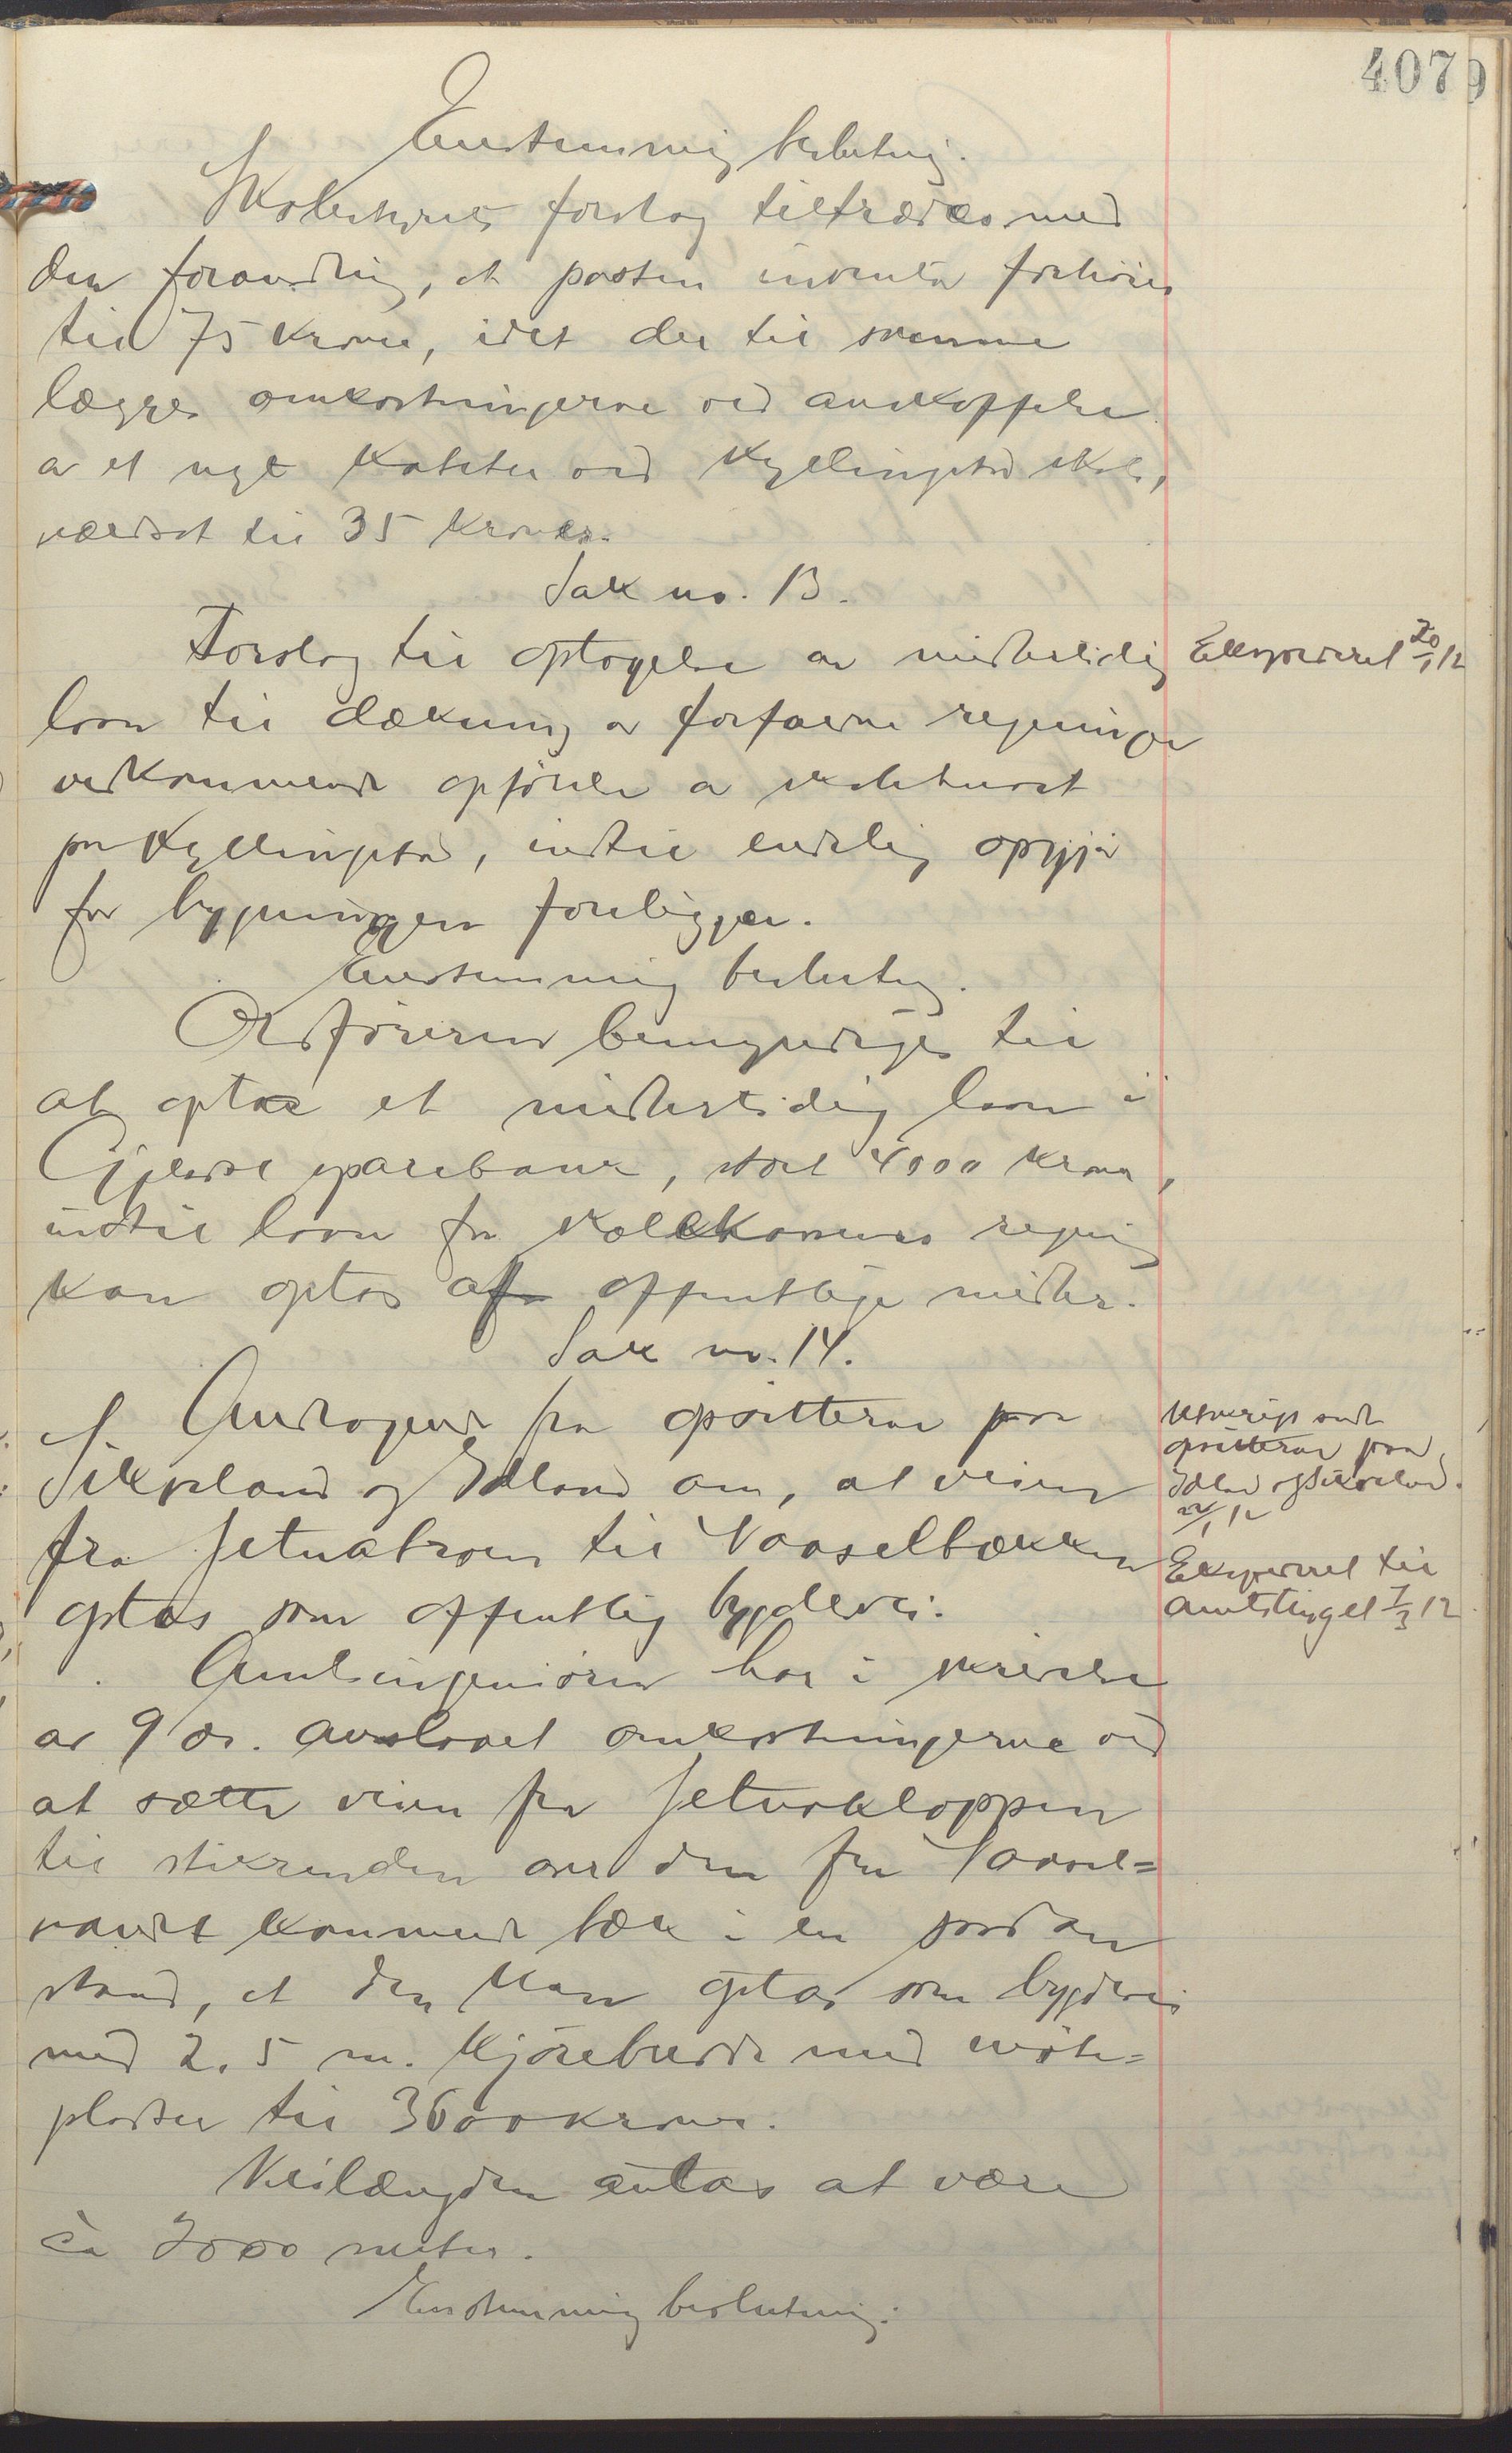 407
Enstemmig beslutning.
Skolestyrets forslag tiltrædes med
den forandring, at posten inventar forhöies
til 75 kroner, idet der til samme
lægges omkostningerne ved anskaffelse
av et nyt kateter ved Kyllingstad skole,
værdsat til 35 kroner.
Sak no. 13.
Forslag til optagelse av midlertidig
laan til dækning av forfaldne regninger
vedkommende opförelse av skolehuset
paa Kyllingstad, indtil endelig opgjör
for bygningen foreligger.
Enstemmig beslutning.
Ordföreren bemyndiges til
at optae et midlertidig laan i
Gjesdal sparebank, stort 4000 kroner,
indtil laan for skolekassens regning
kan optas af offentlige midler.
Sak no. 14.
Andragende fra opsitterne paa
Sikveland og Ødland om, at veien
fra Jetnabroen til Vaaselbækken
optas som offentlig bygdevei.
Amtsingeniören har i skrivelse
av 9 ds. anslaaet omkostningerne ved
at sætte veien fra Jetnakloppen
til stikrenden over den fra Vaasel=
vandet kommende bæk i en saadan
stand, at den kan optas som bygdevei
med 2.5 m. kjörebredde med möte=
pladser til 3600 kroner.
Veilængden antas at være
ca 2000 meter.
Enstemmig beslutning:
Ekspederet 20/1 12
Utskrift sendt
opsitterne paa
Ødland og Sikveland.
22/1 12
Ekspederet til
amtstinget 7/3 12